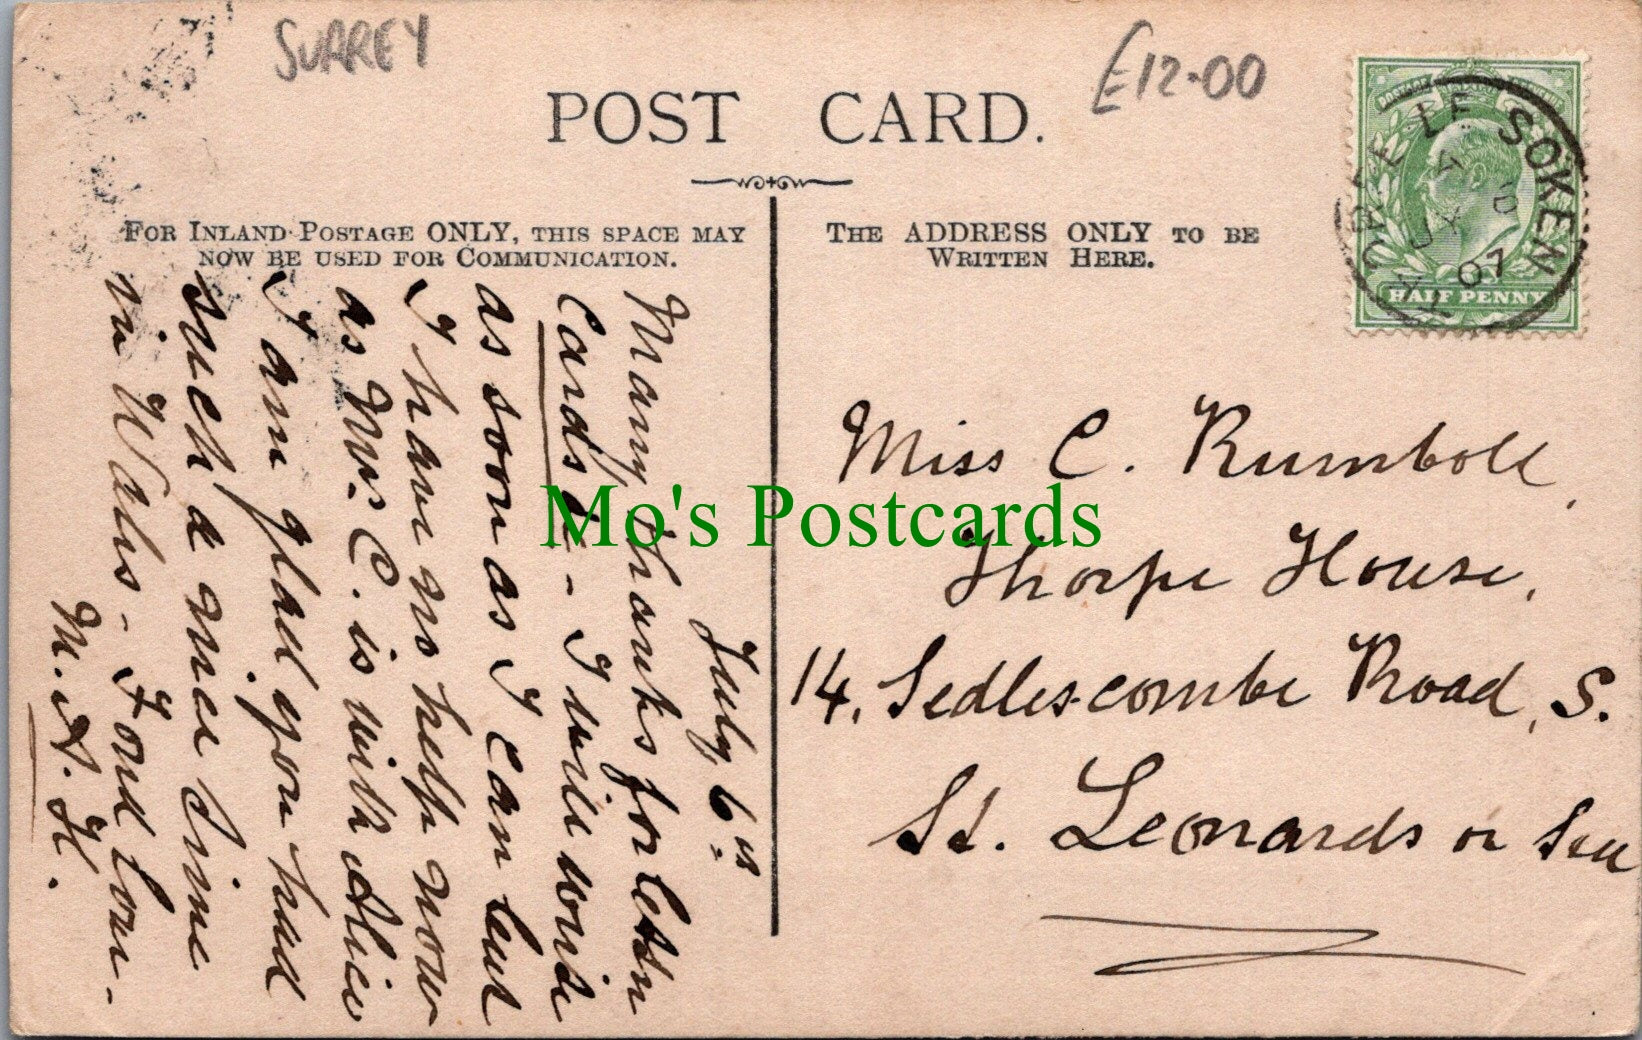 SURREY
£12.00
POST CARD.
FOR INLAND POSTAGE ONLY, THIS SPACE MAY
NOW BE USED FOR COMMUNICATION.
THE ADDRESS ONLY TO BE
WRITTEN HERE.
THORPE LE SOKEN
JY
07
HALF PENNY
July 6th
Many thanks for letter
Cards &c - I will write
as soon as I can but
I have no help now
as Mrs. C. is with Alice
I am glad you had
such a nice time
in Wales - Fond love -
M. A. H.
Miss C. Rumboll,
Thorpe House,
14, Sedlescombe Road, S.
St. Leonards on Sea
Mo's Postcards